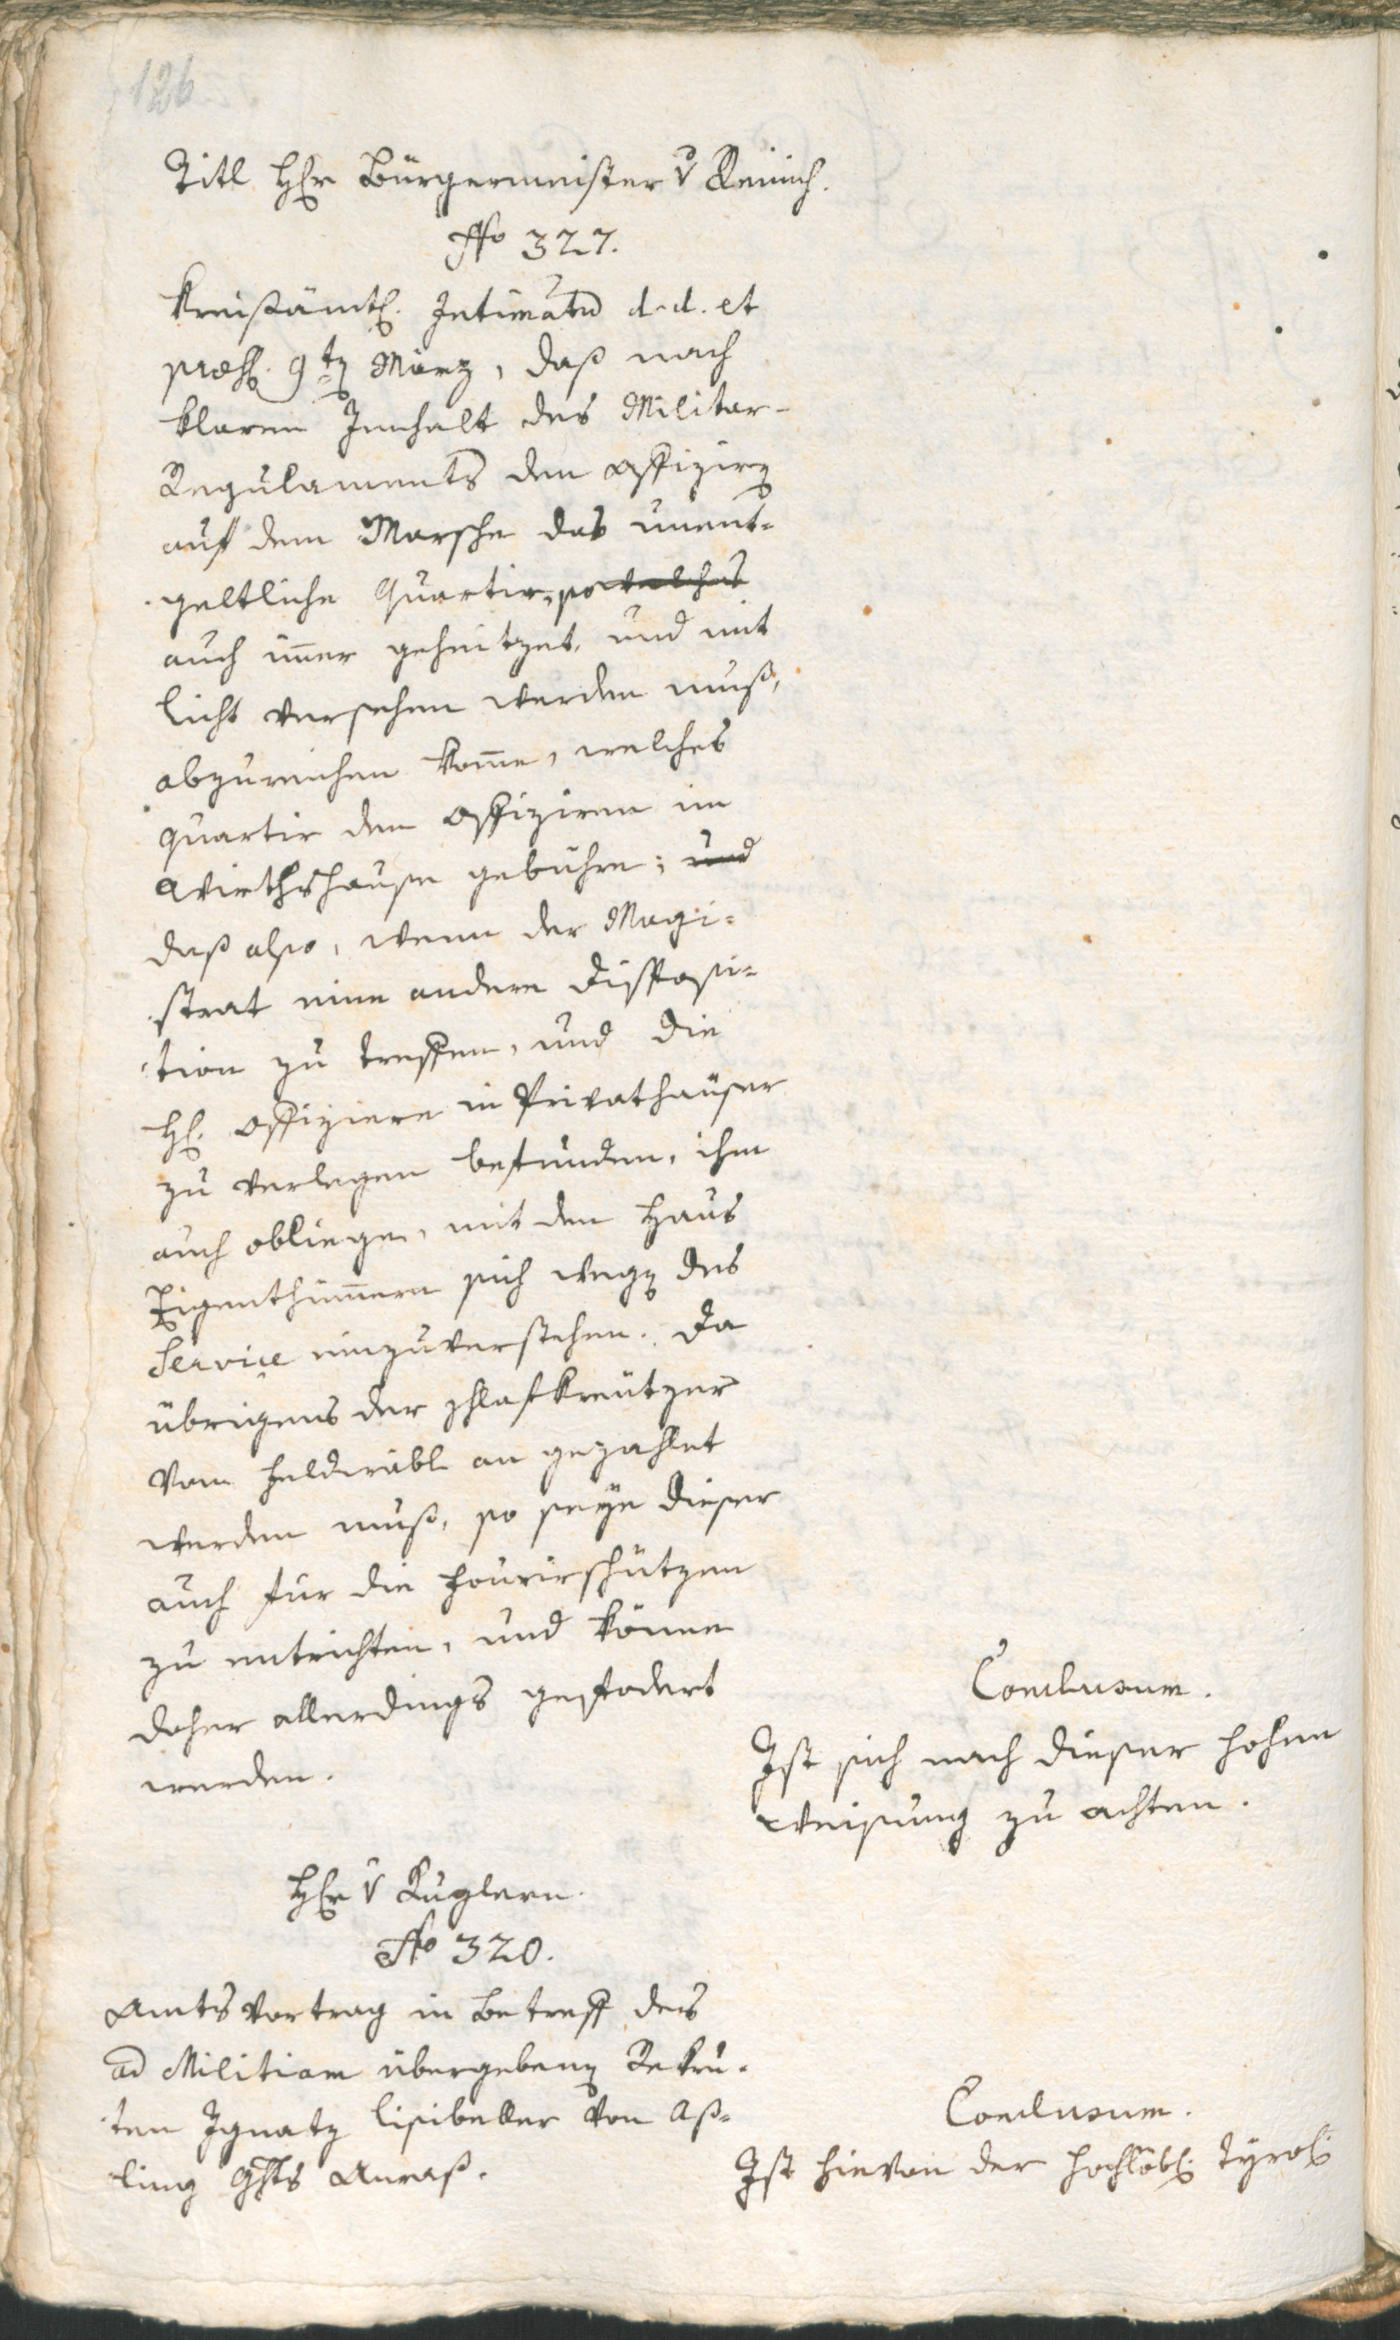 126
Titl. Hr Bürgermeister v Remich.
No 327.
Kreißämtl. Intimatum d. d. et
praes. 9ten März, daß nach
klaren Innhalt des Militar-
Regulaments den Offiziren
auf dem Marsche das unent-
geltliche Quartir, so welches
auch immer geheitzet, und mit
Licht versehen werden muß,
abzureichen komme, welches
Quartir den Offiziren im
Wirthshause gebühre; und
daß also, wenn der Magi-
strat eine andere Disposi-
tion zu treffen, und die
H. Offiziere in Privathäuser
zu verlegen befunden, ihm
auch obliege, mit den Haus
Eigenthümmern sich wegen des
Service einzuverstehen. Da
übrigens der Schlafkreutzer
vom Feldwäbl an gezahlet
werden muß, so seye dieser
auch für die Fourirschützen
zu entrichten, und könne
daher allerdings gefodert
werden.
Conclusum.
Ist sich nach dieser hohen
Weisung zu achten.
Hr v Kuglern.
No 320.
Amtsvortrag in Betreff des
ad Militiam übergebenen Rekru-
ten Ignatz Lisibeller von Aß-
ling Ghts Anraß.
Conclusum.
Ist hievon der Hochlöbl. Tyrol.